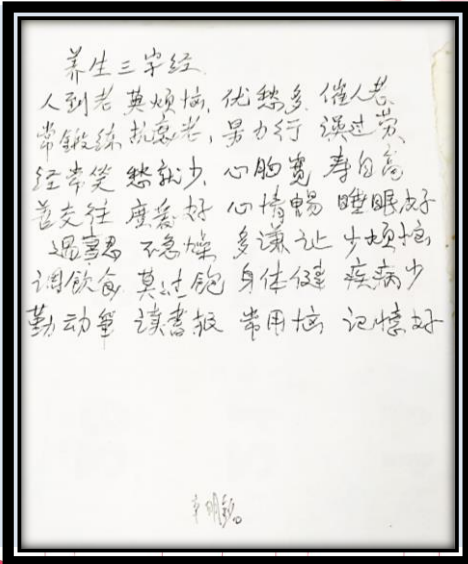 养生三字经
人到老 莫烦恼 忧愁多 催人老
常锻练 抗衰老, 量力行 误过劳
经常笑 愁就少 心胸宽 寿自高
善交往 度龄好 心情畅 睡眠好
遇喜忌 不急燥 多谦让 少烦恼
调飲食 莫过饱 身体健 疾病少
勤动笔 读書报 常用脑 记憶好